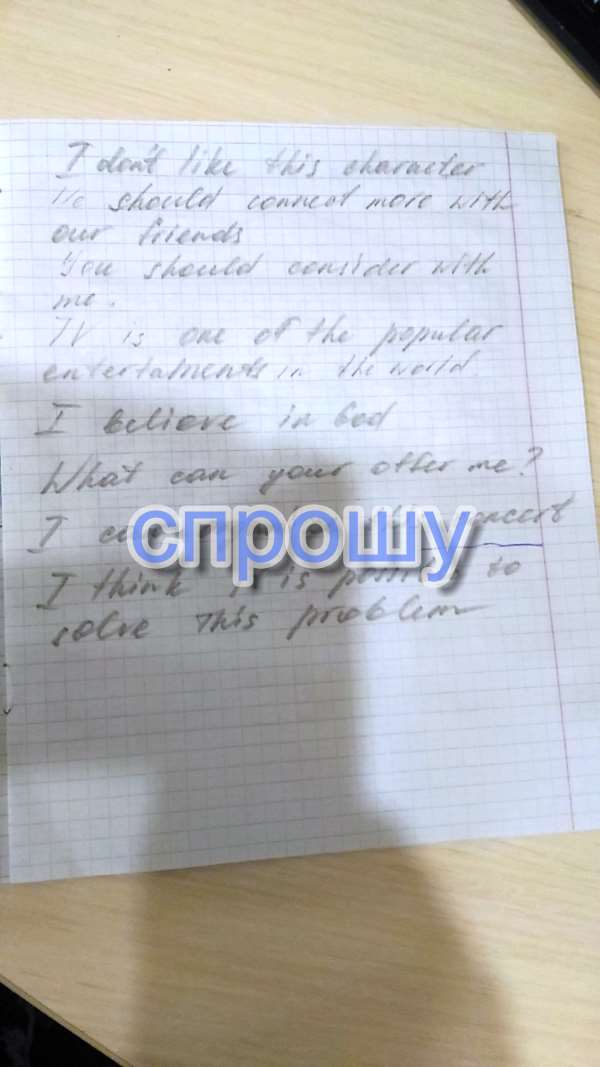 I don't like this character
He should connect more with
our friends
You should consider with
me.
TV is one of the popular
entertaments in the world
I beliove in God
What can your offer me?
I concert
спрошу
I think is to
solve this problem